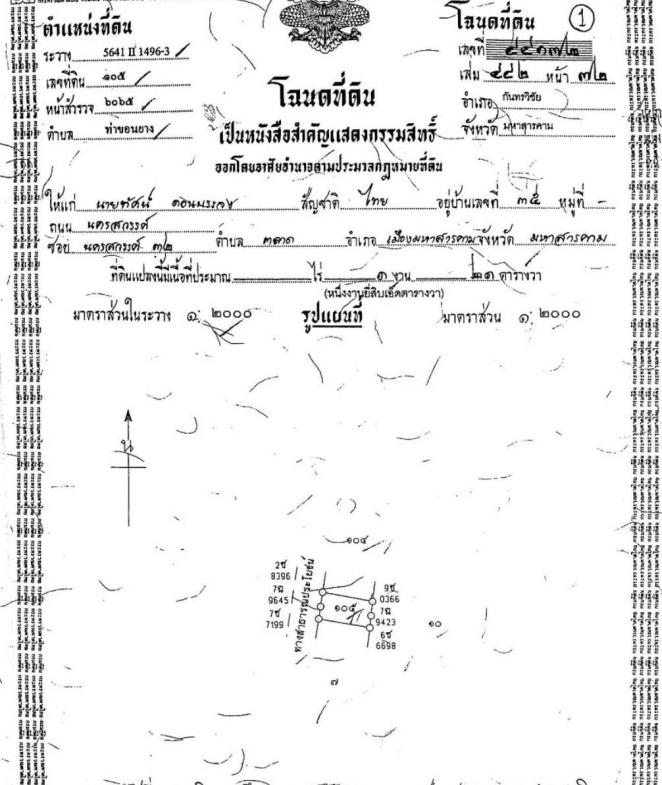 ตำแหน่งที่ดิน
ระวาง 5641 II 1496-3
เลขที่ดิน ๑๐๕
หน้าสำรวจ ๒๐๒๕
ตำบล ท่าขอนยาง
โฉนดที่ดิน ①
เลขที่
เล่ม ๔๔๒ หน้า ๓๒
อำเภอ กันทรวิชัย
จังหวัด มหาสารคาม
โฉนดที่ดิน
เป็นหนังสือสำคัญแสดงกรรมสิทธิ์
ออกโดยอาศัยอำนาจตามประมวลกฎหมายที่ดิน
ให้แก่ นายทัศน์ สัญชาติ ไทย อยู่บ้านเลขที่ ๓๕ หมู่ที่ -
ถนน นครสวรรค์
ซอย นครสวรรค์ ๓๒ ตำบล ตลาด อำเภอ เมืองมหาสารคาม จังหวัด มหาสารคาม
ที่ดินแปลงนี้มีเนื้อที่ประมาณ ไร่ ๑ งาน ๒๑ ตารางวา
(หนึ่งงานยี่สิบเอ็ดตารางวา)
มาตราส่วนในระวาง ๑: ๒๐๐๐ รูปแผนที่ มาตราส่วน ๑: ๒๐๐๐
น
๑๐๔
2ช
8396
7ฌ
9645
7ช
7199
ทางสาธารณประโยชน์
๑๐๕
9ช
0366
7ฌ
9423
6ช
6698
๑๐
๗